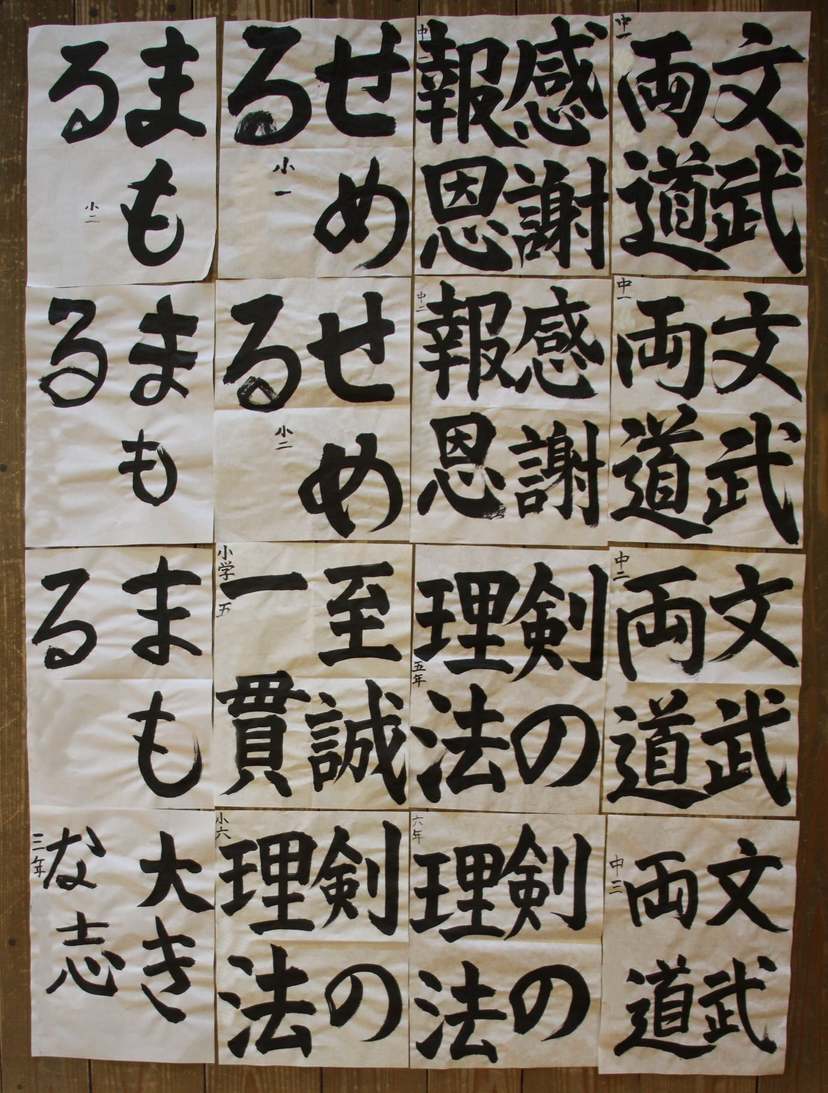 文武
両道
中一
感謝
報恩
中
せめ
る
小一
まも
る
小二
文武
両道
中一
感謝
報恩
中二
せめ
る
小二
まも
る
文武
両道
中二
剣の
理法
五年
至誠
一貫
小学五
まも
る
文武
両道
中三
剣の
理法
六年
剣の
理法
小六
大き
な志
三年